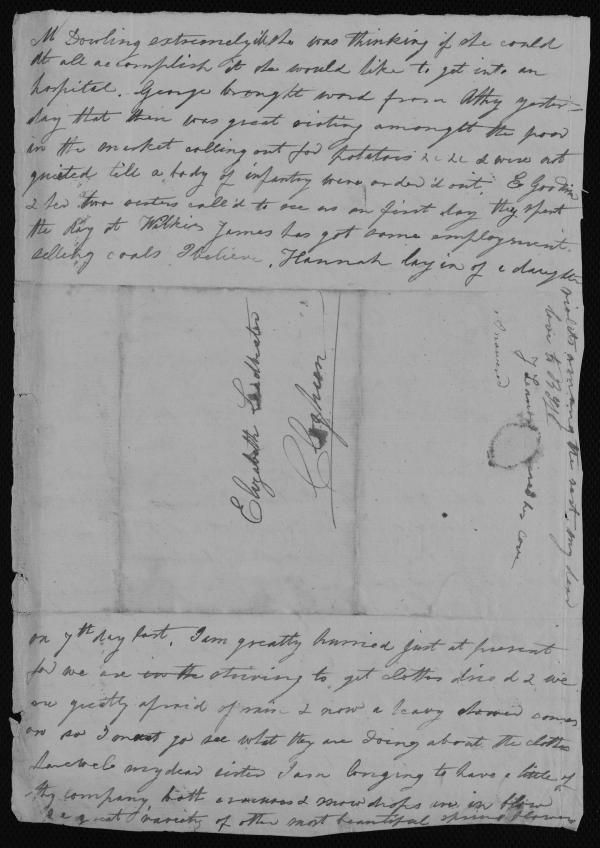 M Dowling extremely ill she was thinking if she could
At all accomplish it she would like to get into an
hospital. George brought word from Athy yester-
day that there was great rioting amongst the poor
in the market calling out for potatoes &c &c & were not
quieted till a body of infantry were order'd out. E Goodwin
& her two sisters call'd to see us on first day they spent
the day at Wilkies James has got some employment
selling coals I believe. Hannah lay in of a daughter
Elizabeth Leadbeater
Clophen
violets among the rest. my dear
love to
on 7th day last. I am greatly hurried just at present
for we are in the striving to get clothes dried & we
are greatly afraid of rain & now a heavy shower comes
on so I must go see what they are doing about the clothes
Farewell my dear sister I am longing to have a little of
thy company, both crocuses & snowdrops are in blow
& a great variety of other most beautiful spring flowers